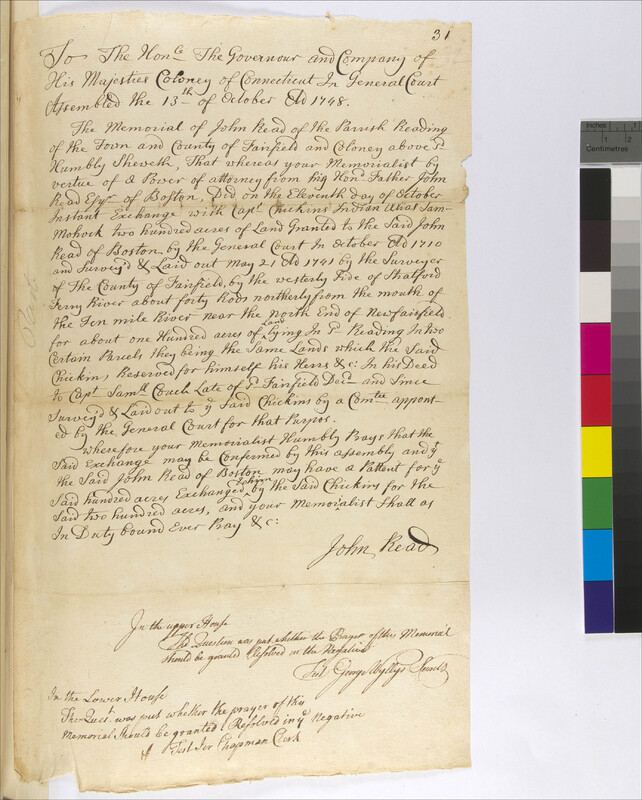 31
To The Honᶜᵉ The Governour and Company of
His Majesties Coloney of Connecticut In General Court
Assembled the 13ᵗʰ of October AD 1748.
The Memorial of John Read of the Parrish Reading
of the Town and County of Fairfield and Coloney above sᵈ
Humbly Sheweth, That whereas your Memorialist by
vertue of a Power of attorney from his Honᵈ Father John
Read Esqʳ of Boston, Did on the Eleventh day of October
Instant Exchange with Capᵗ Chickins Indian alias Sam-
Mohock two hundred acres of Land Granted to the Said John
Read of Boston by the General Court In October AD 1710
and Survey'd & Laid out May 21 AD 1741 by the Surveyer
of The County of Fairfield, by the westerly Side of Stratford
Ferry River about forty Rods northerly from the mouth of
the Ten mile River near the north End of Newfairfield
for about one Hundred acres of Land Lying In sᵈ Reading In two
Certain Parcels, they being the Same Lands which the Said
Chickin, Reserved for himself his Heirs &c: In his Deed
to Capᵗ Samˡˡ Couch Late of sᵈ Fairfield Decᵈ and Since
Survey'd & Laid out to yᵉ Said Chickins by a Comᵗᵉᵉ appoint-
ed by the General Court for that Purpos.
Wherefore your Memorialist Humbly Prays that the
Said Exchange may be Confermed by this assembly and yᵗ
the Said John Read of Boston may have a Pattent for yᵉ
Said hundred acres Exchanged by the Said Chickins for the
Said two hundred acres, and your Memorialist Shall as
In Duty bound Ever Pray &c:
John Read
In the upper House
The Question was put whether the Prayer of this Memorial
should be granted Resolved in the Negative
Test George Wyllys Secretʸ
In the Lower House
The Quesᵗ was put whether the prayer of this
Memorial Should be granted (Resolved in yᵉ Negative
Test Jer Chapman Clerk
Inches
1
1
2
Centimetres